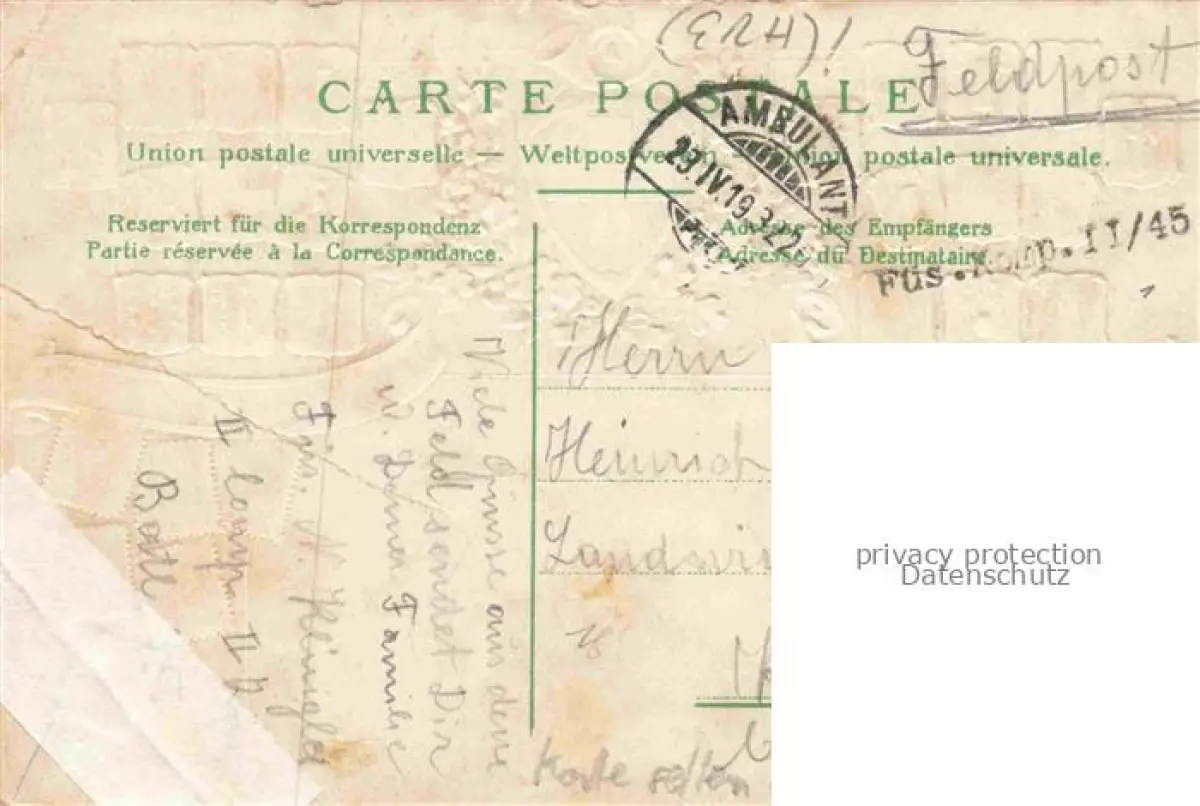 (ERH)!
Feldpost
CARTE POSTALE
Union postale universelle — Weltpostverein — Union postale universale.
AMBULANT
23.IV.19
Reserviert für die Korrespondenz
Partie réservée à la Correspondance.
Adresse des Empfängers
Adresse du Destinataire.
Füs.Komp.II/45
Herrn
Heinrich
Landwir
Viele Grüsse aus dem
Feld sendet Dir
u. Deiner Familie
Füs.
II Comp.
Batl
Karte selten
privacy protection
Datenschutz